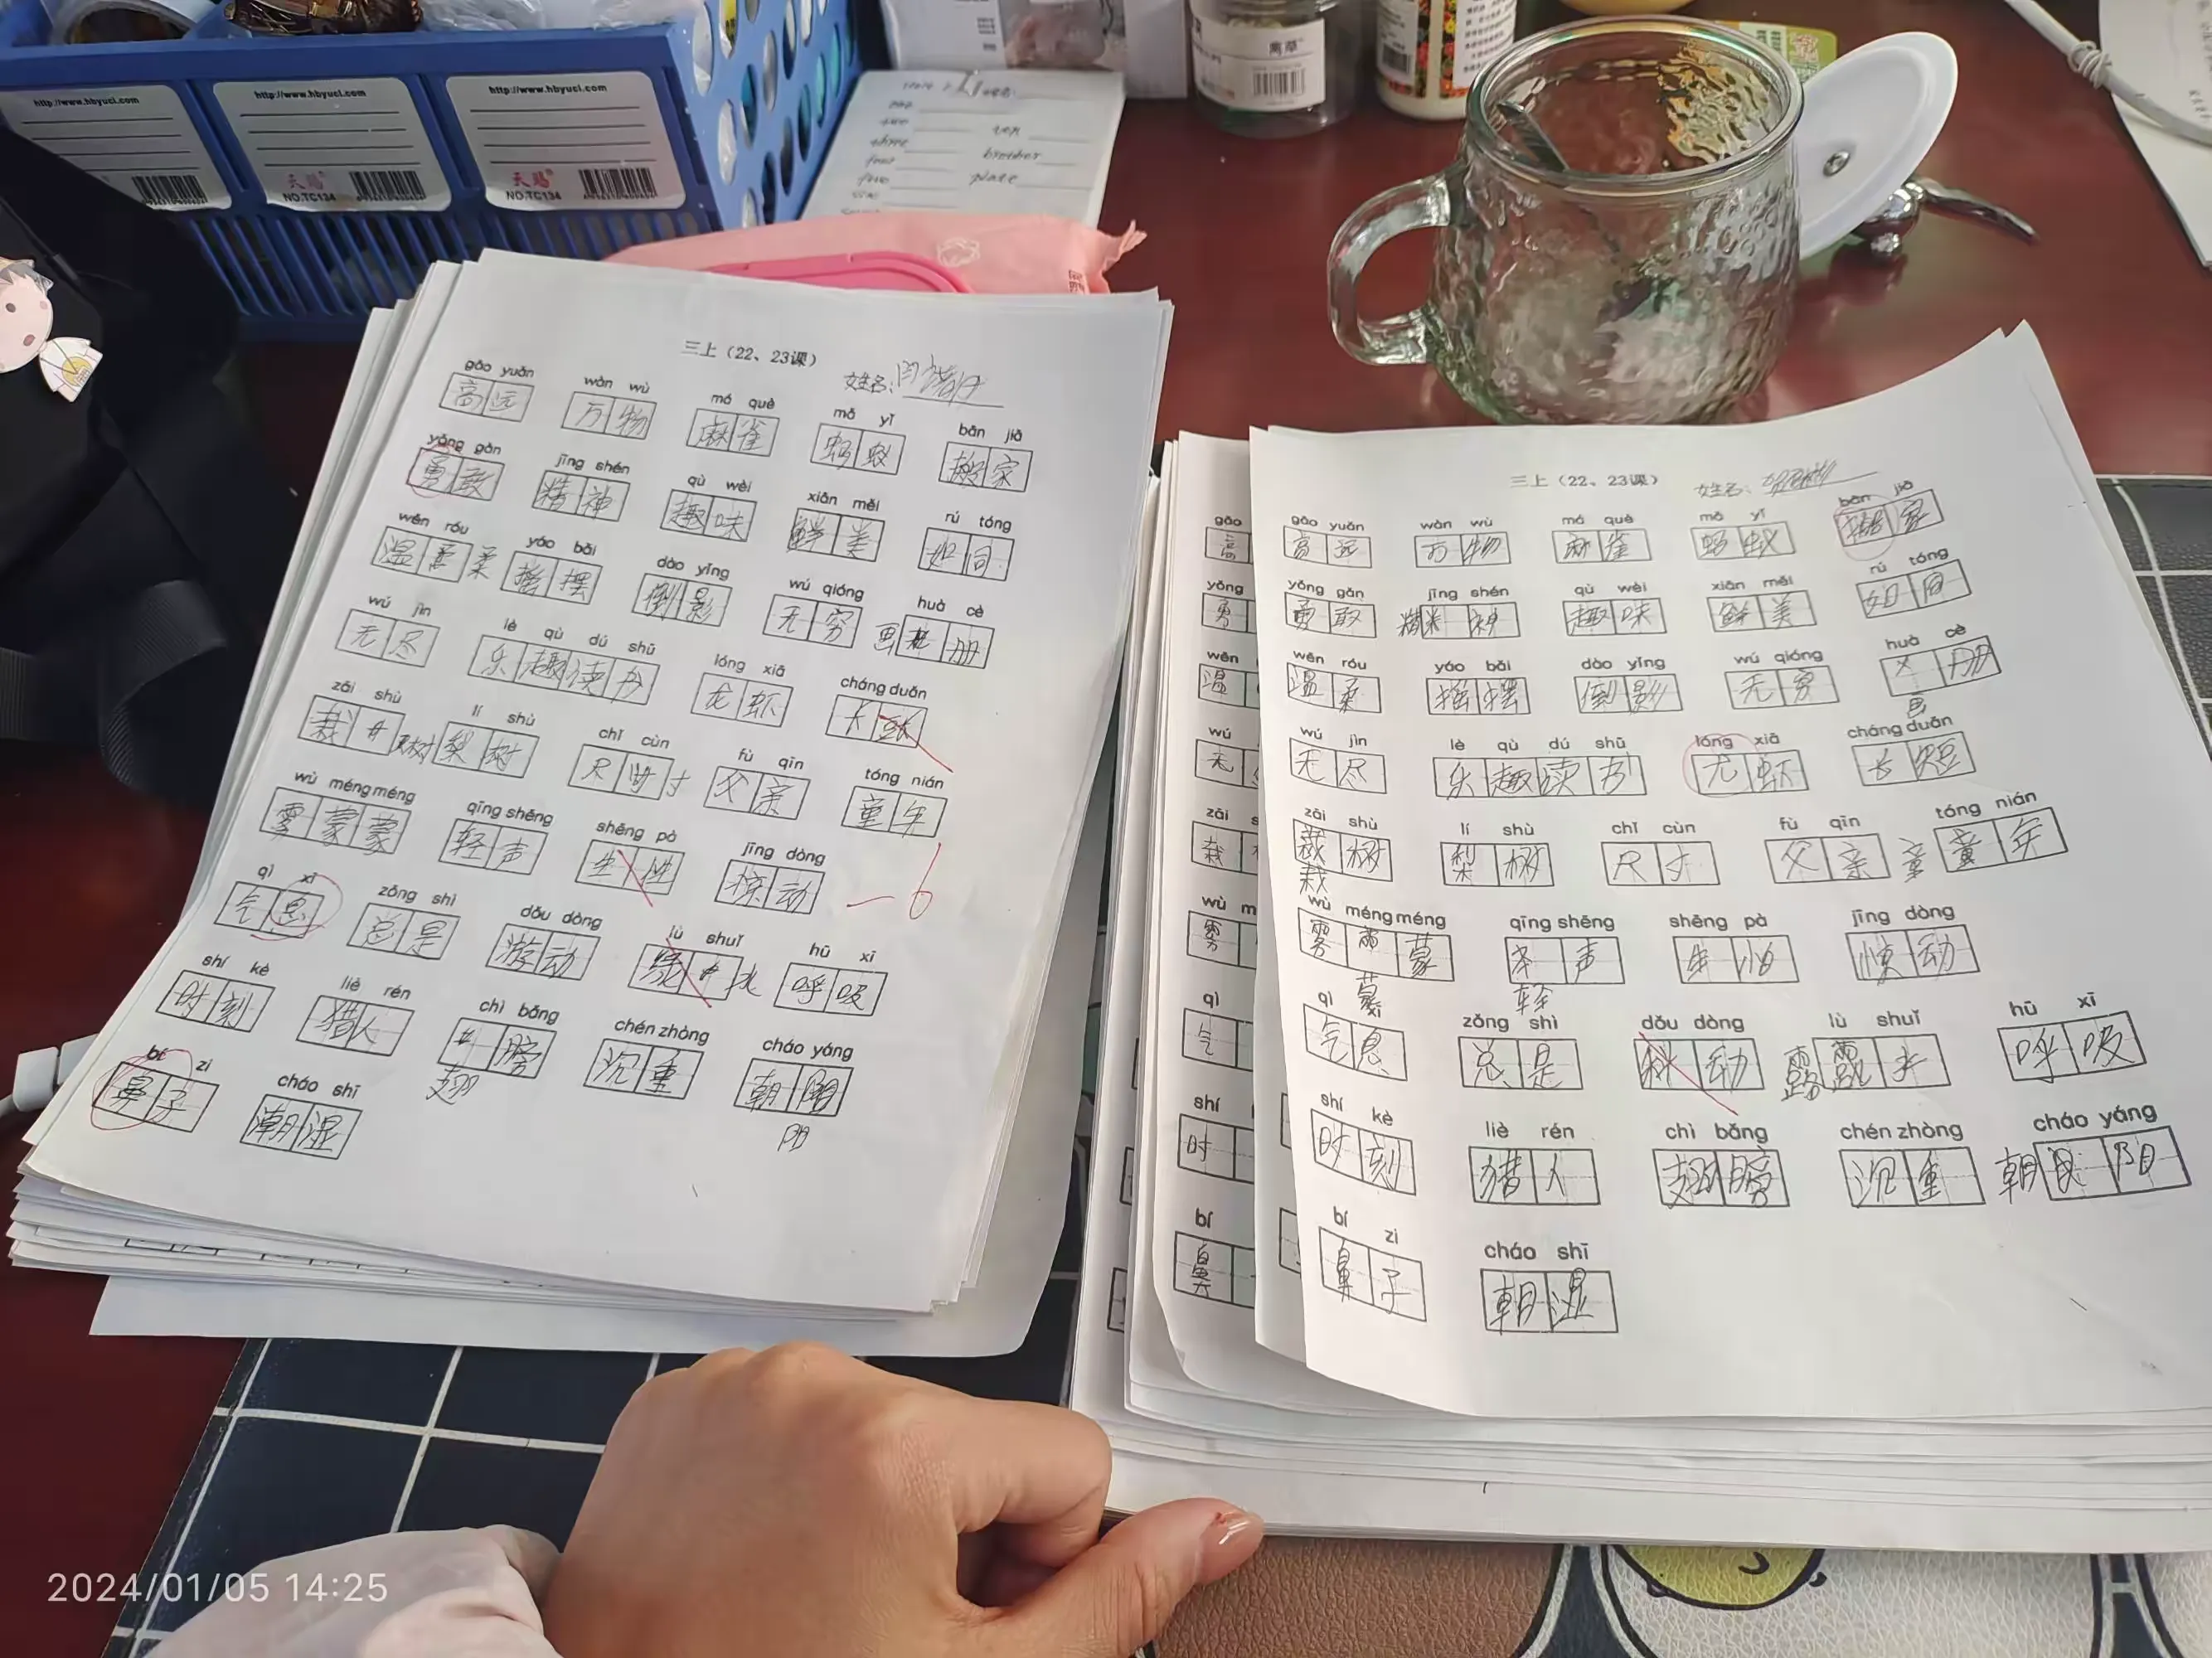 http://www.hbyuci.com
天赐
NO.TC134
http://www.hbyuci.com
天赐
NO.TC134
http://www.hbyuci.com
three
four
five
ten
brother
place
三上（22、23课）
姓名：
gāo yuǎn wàn wù má què mǎ yǐ bān jiā
高远 万物 麻雀 蚂蚁 搬家
yǒng gǎn jīng shén qù wèi xiān měi rú tóng
勇敢 精神 趣味 鲜美 如同
wēn róu yáo bǎi dào yǐng wú qióng huà cè
温柔 摇摆 倒影 无穷 画册
wú jìn lè qù dú shū lóng xiā cháng duǎn
无尽 乐趣读书 龙虾 长
zāi shù lí shù chǐ cùn fù qīn tóng nián
栽树 梨树 尺寸 父亲 童年
wù méng méng qīng shēng shēng pà jīng dòng
雾蒙蒙 轻声 生性 惊动
-6
qì xī zǒng shì dǒu dòng lù shuǐ hū xī
气息 总是 游动 绿水 呼吸
shí kè liè rén chì bǎng chén zhòng cháo yáng
时刻 猎人 翅膀 沉重 朝阳
bí zi cháo shī
鼻子 潮湿
三上（22、23课）
姓名：
gāo yuǎn wàn wù má què mǎ yǐ bān jiā
高远 万物 麻雀 蚂蚁 搬家
yǒng gǎn jīng shén qù wèi xiān měi rú tóng
勇敢 精神 趣味 鲜美 如同
wēn róu yáo bǎi dào yǐng wú qióng huà cè
温柔 摇摆 倒影 无穷 画册
wú jìn lè qù dú shū lóng xiā cháng duǎn
无尽 乐趣读书 龙虾 长短
zāi shù lí shù chǐ cùn fù qīn tóng nián
栽树 梨树 尺寸 父亲 童年
wù méng méng qīng shēng shēng pà jīng dòng
雾蒙蒙 轻声 生怕 惊动
qì xī zǒng shì dǒu dòng lù shuǐ hū xī
气息 总是 动 露水 呼吸
shí kè liè rén chì bǎng chén zhòng cháo yáng
时刻 猎人 翅膀 沉重 朝阳
bí zi cháo shī
鼻子 朝湿
2024/01/05 14:25